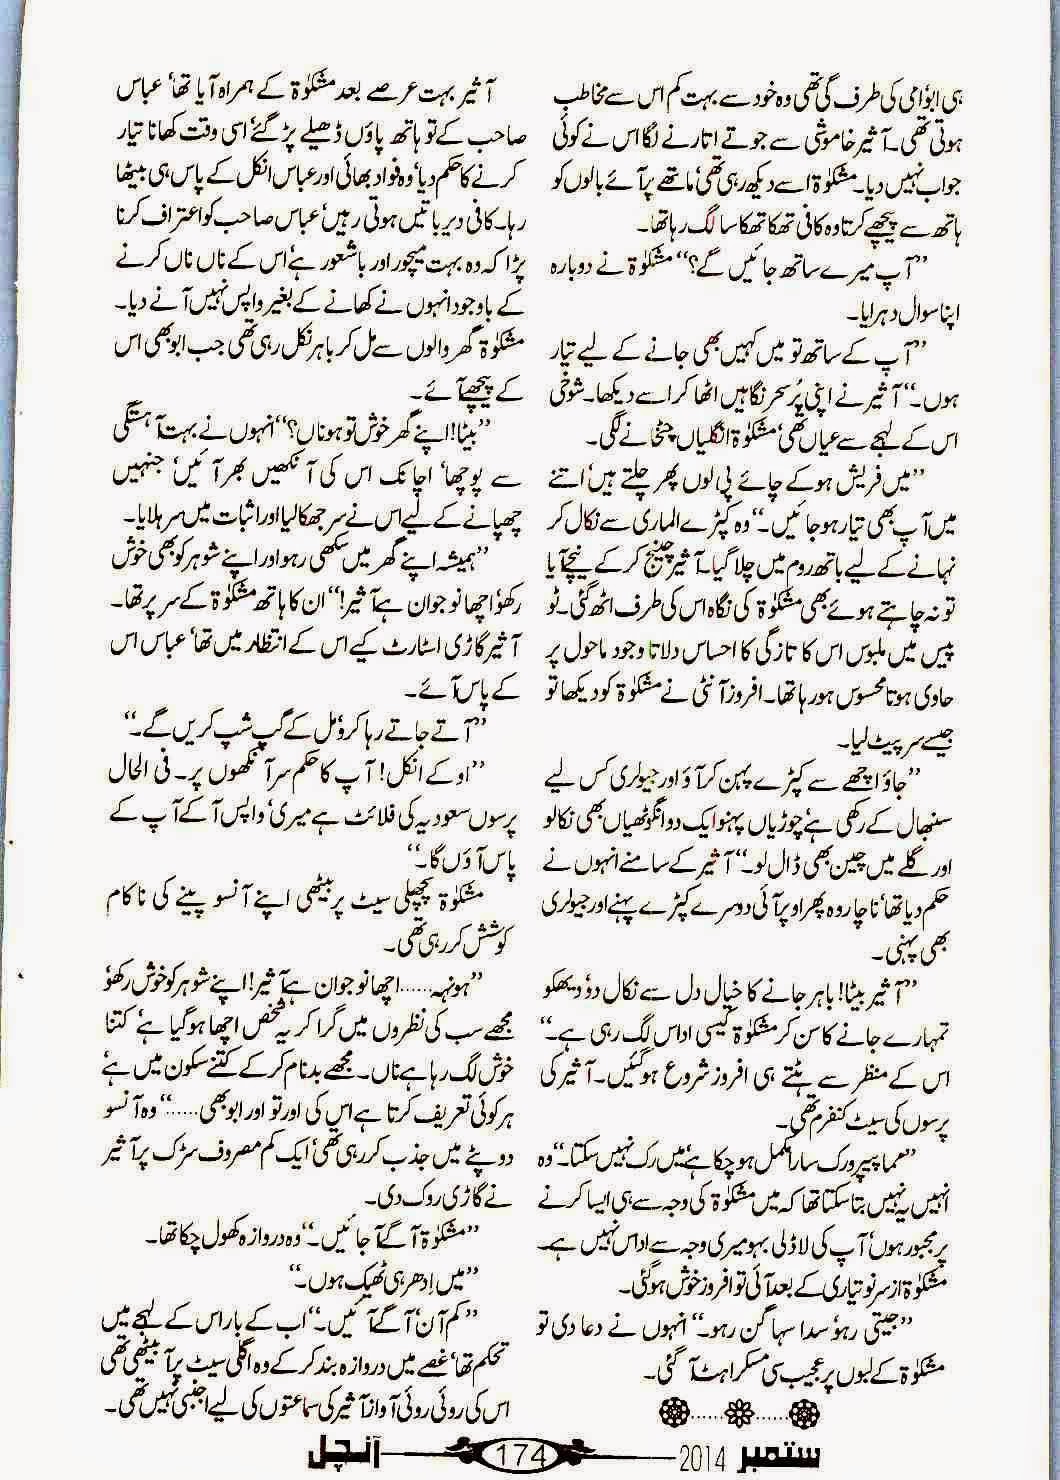 ہی ابو امی کی طرف گئی تھی وہ خود سے بہت کم اس سے مخاطب
ہوتی تھی۔ آثیر خاموشی سے جوتے اتارنے لگا اس نے کوئی
جواب نہیں دیا۔ مشکوٰۃ اسے دیکھ رہی تھی‘ ماتھے پر آئے بالوں کو
ہاتھ سے پیچھے کرتا وہ کافی تھکا تھکا سا لگ رہا تھا۔
”آپ میرے ساتھ جائیں گے؟“ مشکوٰۃ نے دوبارہ
اپنا سوال دہرایا۔
”آپ کے ساتھ تو میں کہیں بھی جانے کے لیے تیار
ہوں۔“ آثیر نے اپنی پُرسحر نگاہیں اٹھا کر اسے دیکھا۔ شوخی
اس کے لہجے سے عیاں تھی‘ مشکوٰۃ انگلیاں چٹخانے لگی۔
”میں فریش ہو کے چائے پی لوں پھر چلتے ہیں‘ اتنے
میں آپ بھی تیار ہو جائیں۔“ وہ کپڑے الماری سے نکال کر
نہانے کے لیے باتھ روم میں چلا گیا۔ آثیر چینج کر کے نیچے آیا
تو نہ چاہتے ہوئے بھی مشکوٰۃ کی نگاہ اس کی طرف اٹھ گئی۔ ٹو
پیس میں ملبوس اس کا تازگی کا احساس دلاتا وجود ماحول پر
حاوی ہوتا محسوس ہو رہا تھا۔ افروز آنٹی نے مشکوٰۃ کو دیکھا تو
جیسے سر پیٹ لیا۔
”جاؤ اچھے سے کپڑے پہن کر آؤ اور جیولری کس لیے
سنبھال کے رکھی ہے‘ چوڑیاں پہنو ایک دو انگوٹھیاں بھی نکالو
اور گلے میں چین بھی ڈال لو۔“ آثیر کے سامنے انہوں نے
حکم دیا تھا‘ ناچار وہ پھر اوپر آئی دوسرے کپڑے پہنے اور جیولری
بھی پہنی۔
”آثیر بیٹا! باہر جانے کا خیال دل سے نکال دو‘ دیکھو
تمہارے جانے کا سن کر مشکوٰۃ کیسی اداس لگ رہی ہے۔“
اس کے منظر سے ہٹتے ہی افروز شروع ہو گئیں۔ آثیر کی
پرسوں کی سیٹ کنفرم تھی۔
”مما پیپر ورک سارا مکمل ہو چکا ہے‘ میں رک نہیں سکتا۔“ وہ
انہیں یہ نہیں بتا سکتا تھا کہ میں مشکوٰۃ کی وجہ سے ہی ایسا کرنے
پر مجبور ہوں‘ آپ کی لاڈلی بہو میری وجہ سے اداس نہیں ہے۔
مشکوٰۃ از سر نو تیاری کے بعد آئی تو افروز خوش ہو گئی۔
”جیتی رہو‘ سدا سہاگن رہو۔“ انہوں نے دعا دی تو
مشکوٰۃ کے لبوں پر عجیب سی مسکراہٹ آ گئی۔
آثیر بہت عرصے بعد مشکوٰۃ کے ہمراہ آیا تھا‘ عباس
صاحب کے تو ہاتھ پاؤں ڈھیلے پڑ گئے‘ اسی وقت کھانا تیار
کرنے کا حکم دیا‘ وہ فواد بھائی اور عباس انکل کے پاس ہی بیٹھا
رہا۔ کافی دیر باتیں ہوتی رہیں‘ عباس صاحب کو اعتراف کرنا
پڑا کہ وہ بہت میچور اور باشعور ہے‘ اس کے ناں ناں کرنے
کے باوجود انہوں نے کھانے کے بغیر واپس نہیں آنے دیا۔
مشکوٰۃ گھر والوں سے مل کر باہر نکل رہی تھی جب ابو بھی اس
کے پیچھے آئے۔
”بیٹا! اپنے گھر خوش تو ہو ناں؟“ انہوں نے بہت آہستگی
سے پوچھا‘ اچانک اس کی آنکھیں بھر آئیں‘ جنہیں
چھپانے کے لیے اس نے سر جھکا لیا اور اثبات میں سر ہلایا۔
”ہمیشہ اپنے گھر میں سکھی رہو اور اپنے شوہر کو بھی خوش
رکھو‘ اچھا نوجوان ہے آثیر!“ ان کا ہاتھ مشکوٰۃ کے سر پر تھا۔
آثیر گاڑی اسٹارٹ کیے اس کے انتظار میں تھا‘ عباس اس
کے پاس آئے۔
”آتے جاتے رہا کرو‘ مل کے گپ شپ کریں گے۔“
”او کے انکل! آپ کا حکم سر آنکھوں پر۔ فی الحال
پرسوں سعودیہ کی فلائٹ ہے میری‘ واپس آ کے آپ کے
پاس آؤں گا۔“
مشکوٰۃ پچھلی سیٹ پر بیٹھی اپنے آنسو پینے کی ناکام
کوشش کر رہی تھی۔
”ہونہہ...... اچھا نوجوان ہے آثیر! اپنے شوہر کو خوش رکھو‘
مجھے سب کی نظروں میں گرا کر یہ شخص اچھا ہو گیا ہے‘ کتنا
خوش لگ رہا ہے ناں۔ مجھے بدنام کر کے کتنے سکون میں ہے‘
ہر کوئی تعریف کرتا ہے اس کی اور تو اور ابو بھی......“ وہ آنسو
دوپٹے میں جذب کر رہی تھی‘ ایک کم مصروف سڑک پر آثیر
نے گاڑی روک دی۔
”مشکوٰۃ آگے آ جائیں۔“ وہ دروازہ کھول چکا تھا۔
”میں اِدھر ہی ٹھیک ہوں۔“
”کم آن‘ آگے آئیں۔“ اب کے بار اس کے لہجے میں
تحکم تھا‘ غصے میں دروازہ بند کر کے وہ اگلی سیٹ پر آ بیٹھی تھی
اس کی روئی روئی آواز آثیر کی سماعتوں کے لیے اجنبی نہیں تھی۔
ستمبر 2014 174 آنچل